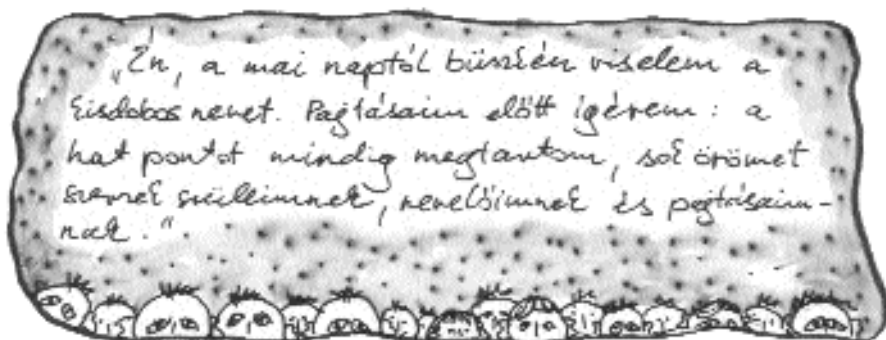 „Én, a mai naptól büszkén viselem a
kisdobos nevet. Pajtásaim előtt ígérem: a
hat pontot mindig megtartom, sok örömet
szerzek szüleimnek, nevelőimnek és pajtásaim-
nak."